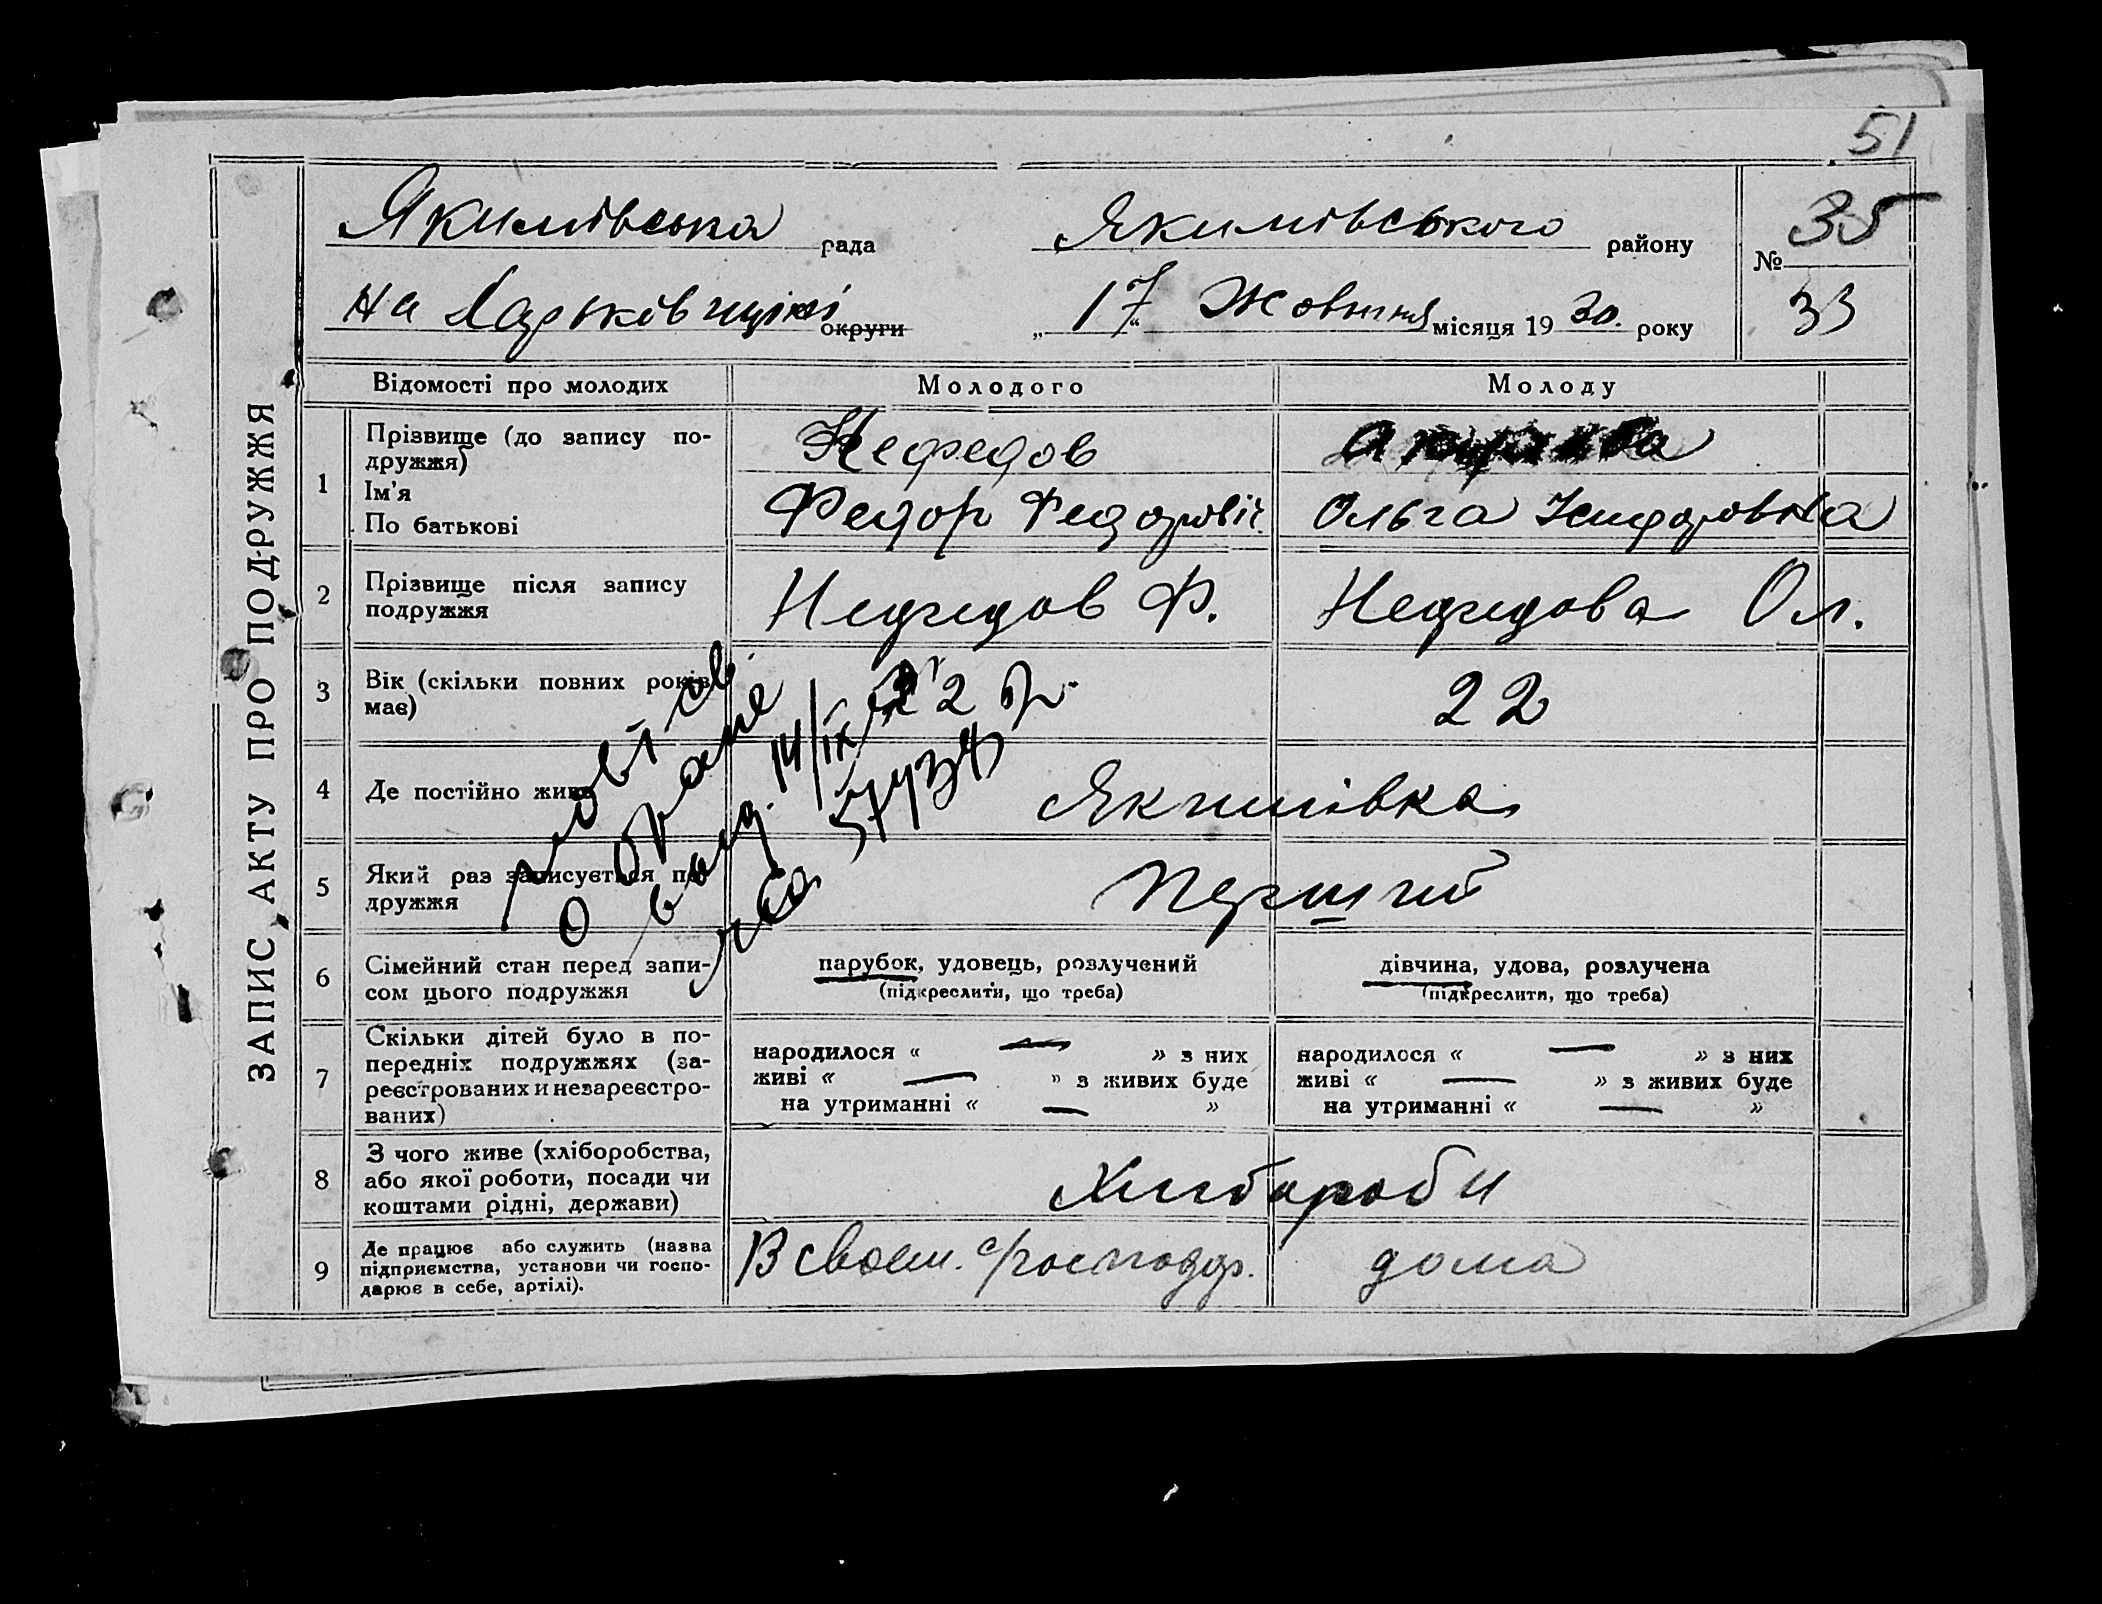 51
Якимівська рада
Якимівського району
№ 35
на Харьківщині округи
„17“ Жовтня місяця 1930. року
33
ЗАПИС АКТУ ПРО ПОДРУЖЖЯ
Відомості про молодих
Молодого
Молоду
1
Прізвище (до запису по-
дружжя)
Ім’я
По батькові
Нефедов
Федор Федоровіч
Ольга
2
Прізвище після запису
подружжя
Нефедов Ф.
Нефедова Ол.
3
Вік (скільки повних років
має)
22
22
4
Де постійно живе
Якимівка
5
Який раз записується по-
дружжя
Перший
6
Сімейний стан перед запи-
сом цього подружжя
парубок, удовець, розлучений
(підкреслити, що треба)
дівчина, удова, розлучена
(підкреслити, що треба)
7
Скільки дітей було в по-
передніх подружжях (за-
реєстрованих и незареєстро-
ваних)
народилося « — » з них
живі « — » з живих буде
на утриманні « — »
народилося « — » з них
живі « — » з живих буде
на утриманні « — »
8
З чого живе (хліборобства,
або якої роботи, посади чи
коштами рідні, держави)
Хлібороби
9
Де працює або служить (назва
підприємства, установи чи госпо-
дарює в себе, артілі).
В своем. господар.
дома
о браке
выд. 14/IX